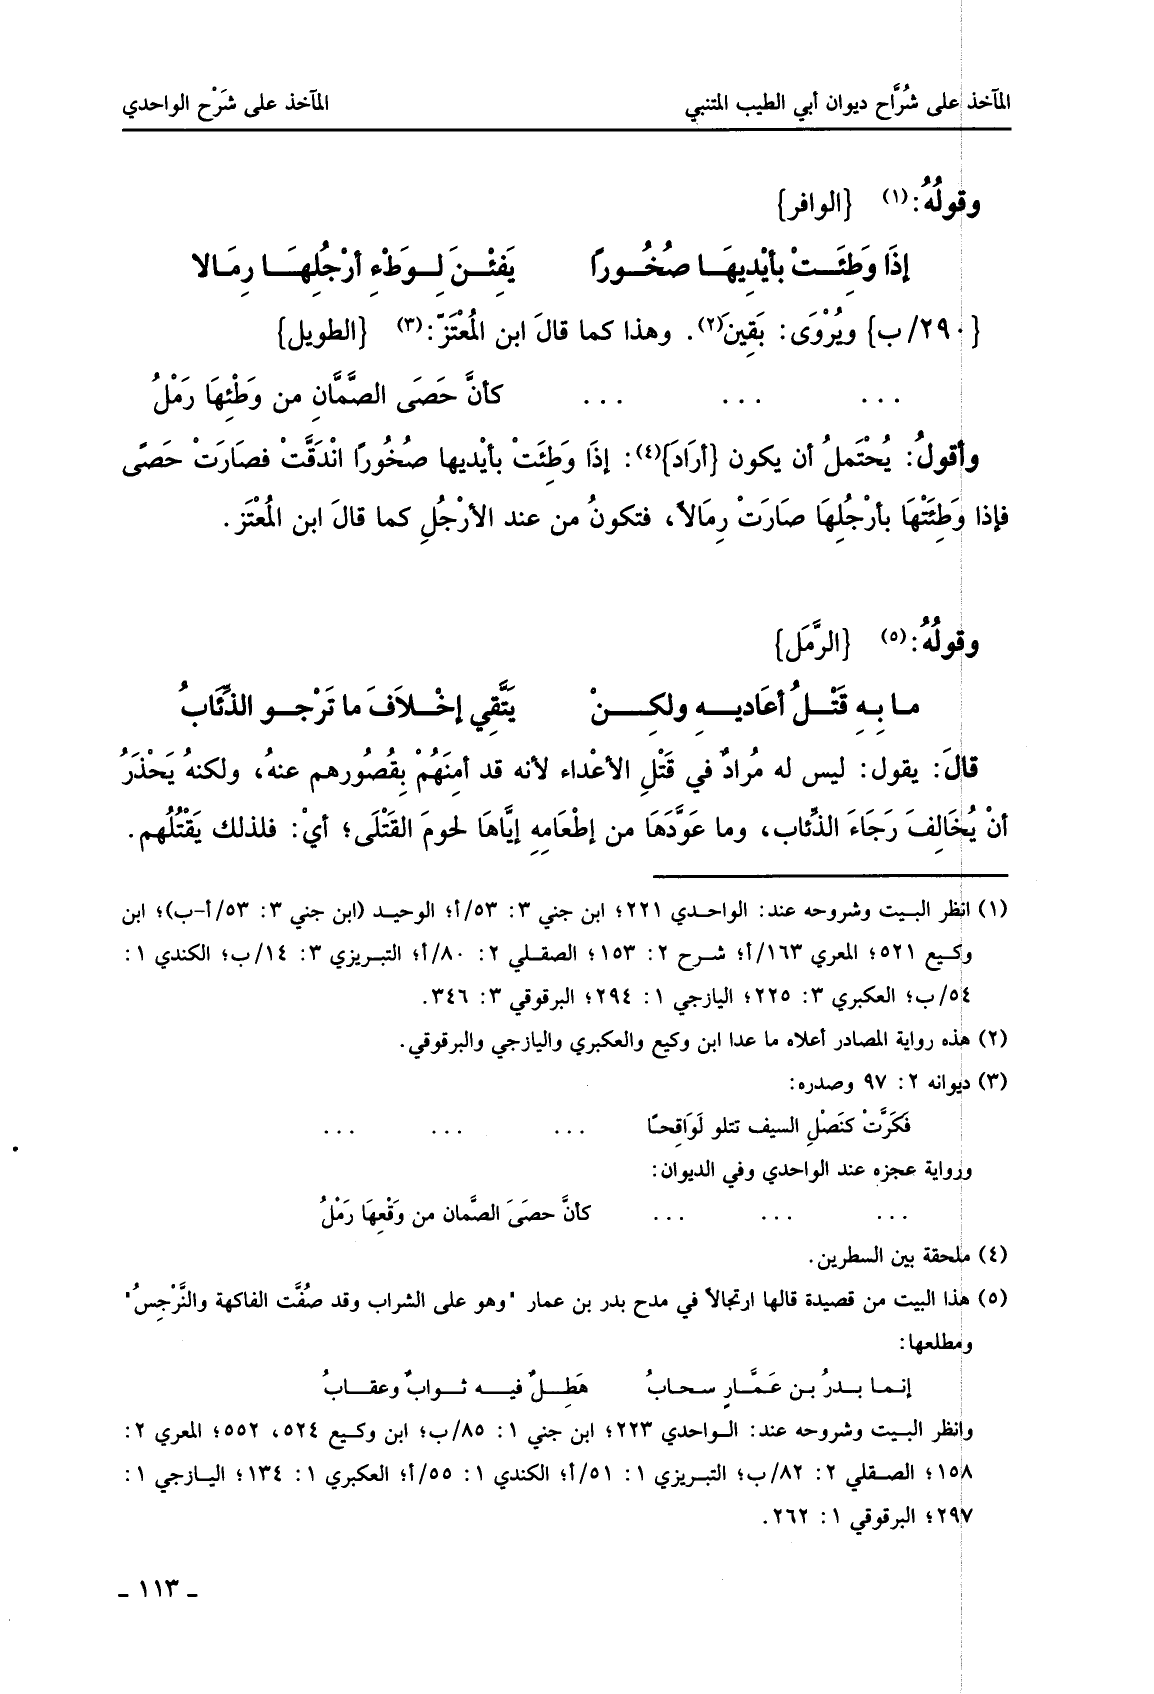 المآخذ على شُرَّاح ديوان أبي الطيب المتنبي المآخذ على شَرْح الواحدي
وقولُهُ:(١) {الوافر}
إذَا وَطِئَــتْ بأيْدِيهَــا صخُــورًا يَفِئْــنَ لِــوَطْءِ أرْجُلِهَــا رِمَـالا
{٢٩٠/ب} ويُرْوَى: بَقِينَ(٢). وهذا كما قالَ ابن المُعْتَزّ:(٣) {الطويل}
... ... ... كأنَّ حَصَى الصَّمَّانِ من وَطْئِهَا رَمْلُ
وأقولُ: يُحْتَملُ أن يكون {أرَادَ}(٤): إذَا وَطِئَتْ بأيْديها صُخُورًا انْدَقَّتْ فصَارَتْ حَصًى
فإذا وَطِئَتْهَا بأرْجُلِهَا صَارَتْ رِمَالاً، فتكونُ من عند الأرْجُلِ كما قالَ ابن المُعْتَز.
وقولُهُ:(٥) {الرَّمَل}
مـا بِـهِ قَتْــلُ أعَاديــهِ ولكِــنْ يَتَّقِي إخْــلاَفَ ما تَرْجـو الذِّئَابُ
قالَ: يقول: ليس له مُرادٌ في قَتْلِ الأعْداء لأنه قد أمِنَهُمْ بِقُصُورهم عنهُ، ولكنهُ يَحْذَرُ
أنْ يُخَالِفَ رَجَاءَ الذِّئاب، وما عَوَّدَهَا من إطْعَامِهِ إيَّاهَا لحومَ القَتْلَى؛ أيْ: فلذلك يَقْتُلُهم.
(١) انظر البـيت وشروحه عند: الواحـدي ٢٢١؛ ابن جني ٣: ٥٣/أ؛ الوحيـد (ابن جني ٣: ٥٣/أ-ب)؛ ابن
وكـيع ٥٢١؛ المعري ١٦٣/أ؛ شـرح ٢: ١٥٣؛ الصقـلي ٢: ٨٠/أ؛ التبـريزي ٣: ١٤/ب؛ الكندي ١:
٥٤/ب؛ العكبري ٣: ٢٢٥؛ اليازجي ١: ٢٩٤؛ البرقوقي ٣: ٣٤٦.
(٢) هذه رواية المصادر أعلاه ما عدا ابن وكيع والعكبري واليازجي والبرقوقي.
(٣) ديوانه ٢: ٩٧ وصدره:
فَكَرَّتْ كنَصْلِ السيف تتلو لَوَاقِحًـا ... ... ...
ورواية عجزه عند الواحدي وفي الديوان:
... ... ... كأنَّ حصَىَ الصَّمان من وَقْعِهَا رَمْلُ
(٤) ملحقة بين السطرين.
(٥) هذا البيت من قصيدة قالها ارتجالاً في مدح بدر بن عمار "وهو على الشراب وقد صُفَّت الفاكهة والنَّرْجِسُ"
ومطلعها:
إنمـا بـدرُ بـن عَمَّـارٍ سحـابُ هَطِــلٌ فيــه ثـوابٌ وعقـابُ
وانظر البـيت وشروحه عند: الـواحدي ٢٢٣؛ ابن جني ١: ٨٥/ب؛ ابن وكيع ٥٢٤، ٥٥٢؛ المعري ٢:
١٥٨؛ الصـقلي ٢: ٨٢/ب؛ التبـريزي ١: ٥١/أ؛ الكندي ١: ٥٥/أ؛ العكبري ١: ١٣٤؛ اليـازجي ١:
٢٩٧؛ البرقوقي ١: ٢٦٢.
ـ ١١٣ ـ